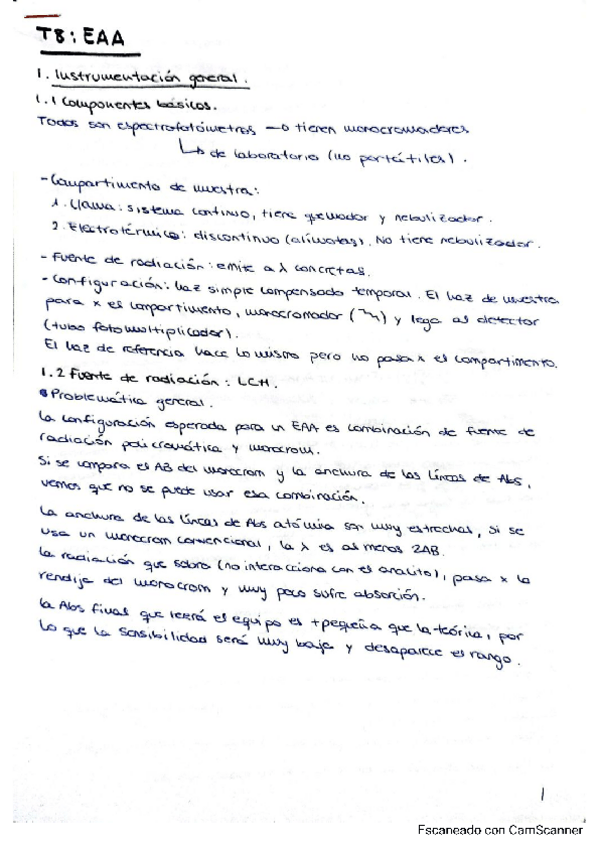 T8: EAA
1. Instrumentación general.
1.1 Componentes básicos.
Todos son espectrofotómetros → tienen monocromadores
↳ de laboratorio (no portátiles).
- Compartimento de muestra:
1. Llama: sistema continuo, tiene quemador y nebulizador.
2. Electrotérmico: discontinuo (alícuotas). No tiene nebulizador.
- Fuente de radiación: emite a λ concretas.
- Configuración: haz simple compensado temporal. El haz de muestra
para x el compartimento, monocromador ( ) y llega al detector
(tubo fotomultiplicador).
El haz de referencia hace lo mismo pero no pasa x el compartimento.
1.2 Fuente de radiación: LCH.
Problemática general.
La configuración esperada para un EAA es combinación de fuente de
radiación policromática y monocrom.
Si se compara el AB del monocrom y la anchura de las líneas de Abs,
vemos que no se puede usar esa combinación.
La anchura de las líneas de Abs atómica son muy estrechas, si se
usa un monocrom convencional, la λ es al menos 2AB.
La radiación que sobra (no interacciona con el analito), pasa x la
rendija del monocrom y muy poco sufre absorción.
La Abs final que leerá el equipo es +pequeña que la teórica, por
lo que la sensibilidad será muy baja y desaparece el rango.
1
Escaneado con CamScanner